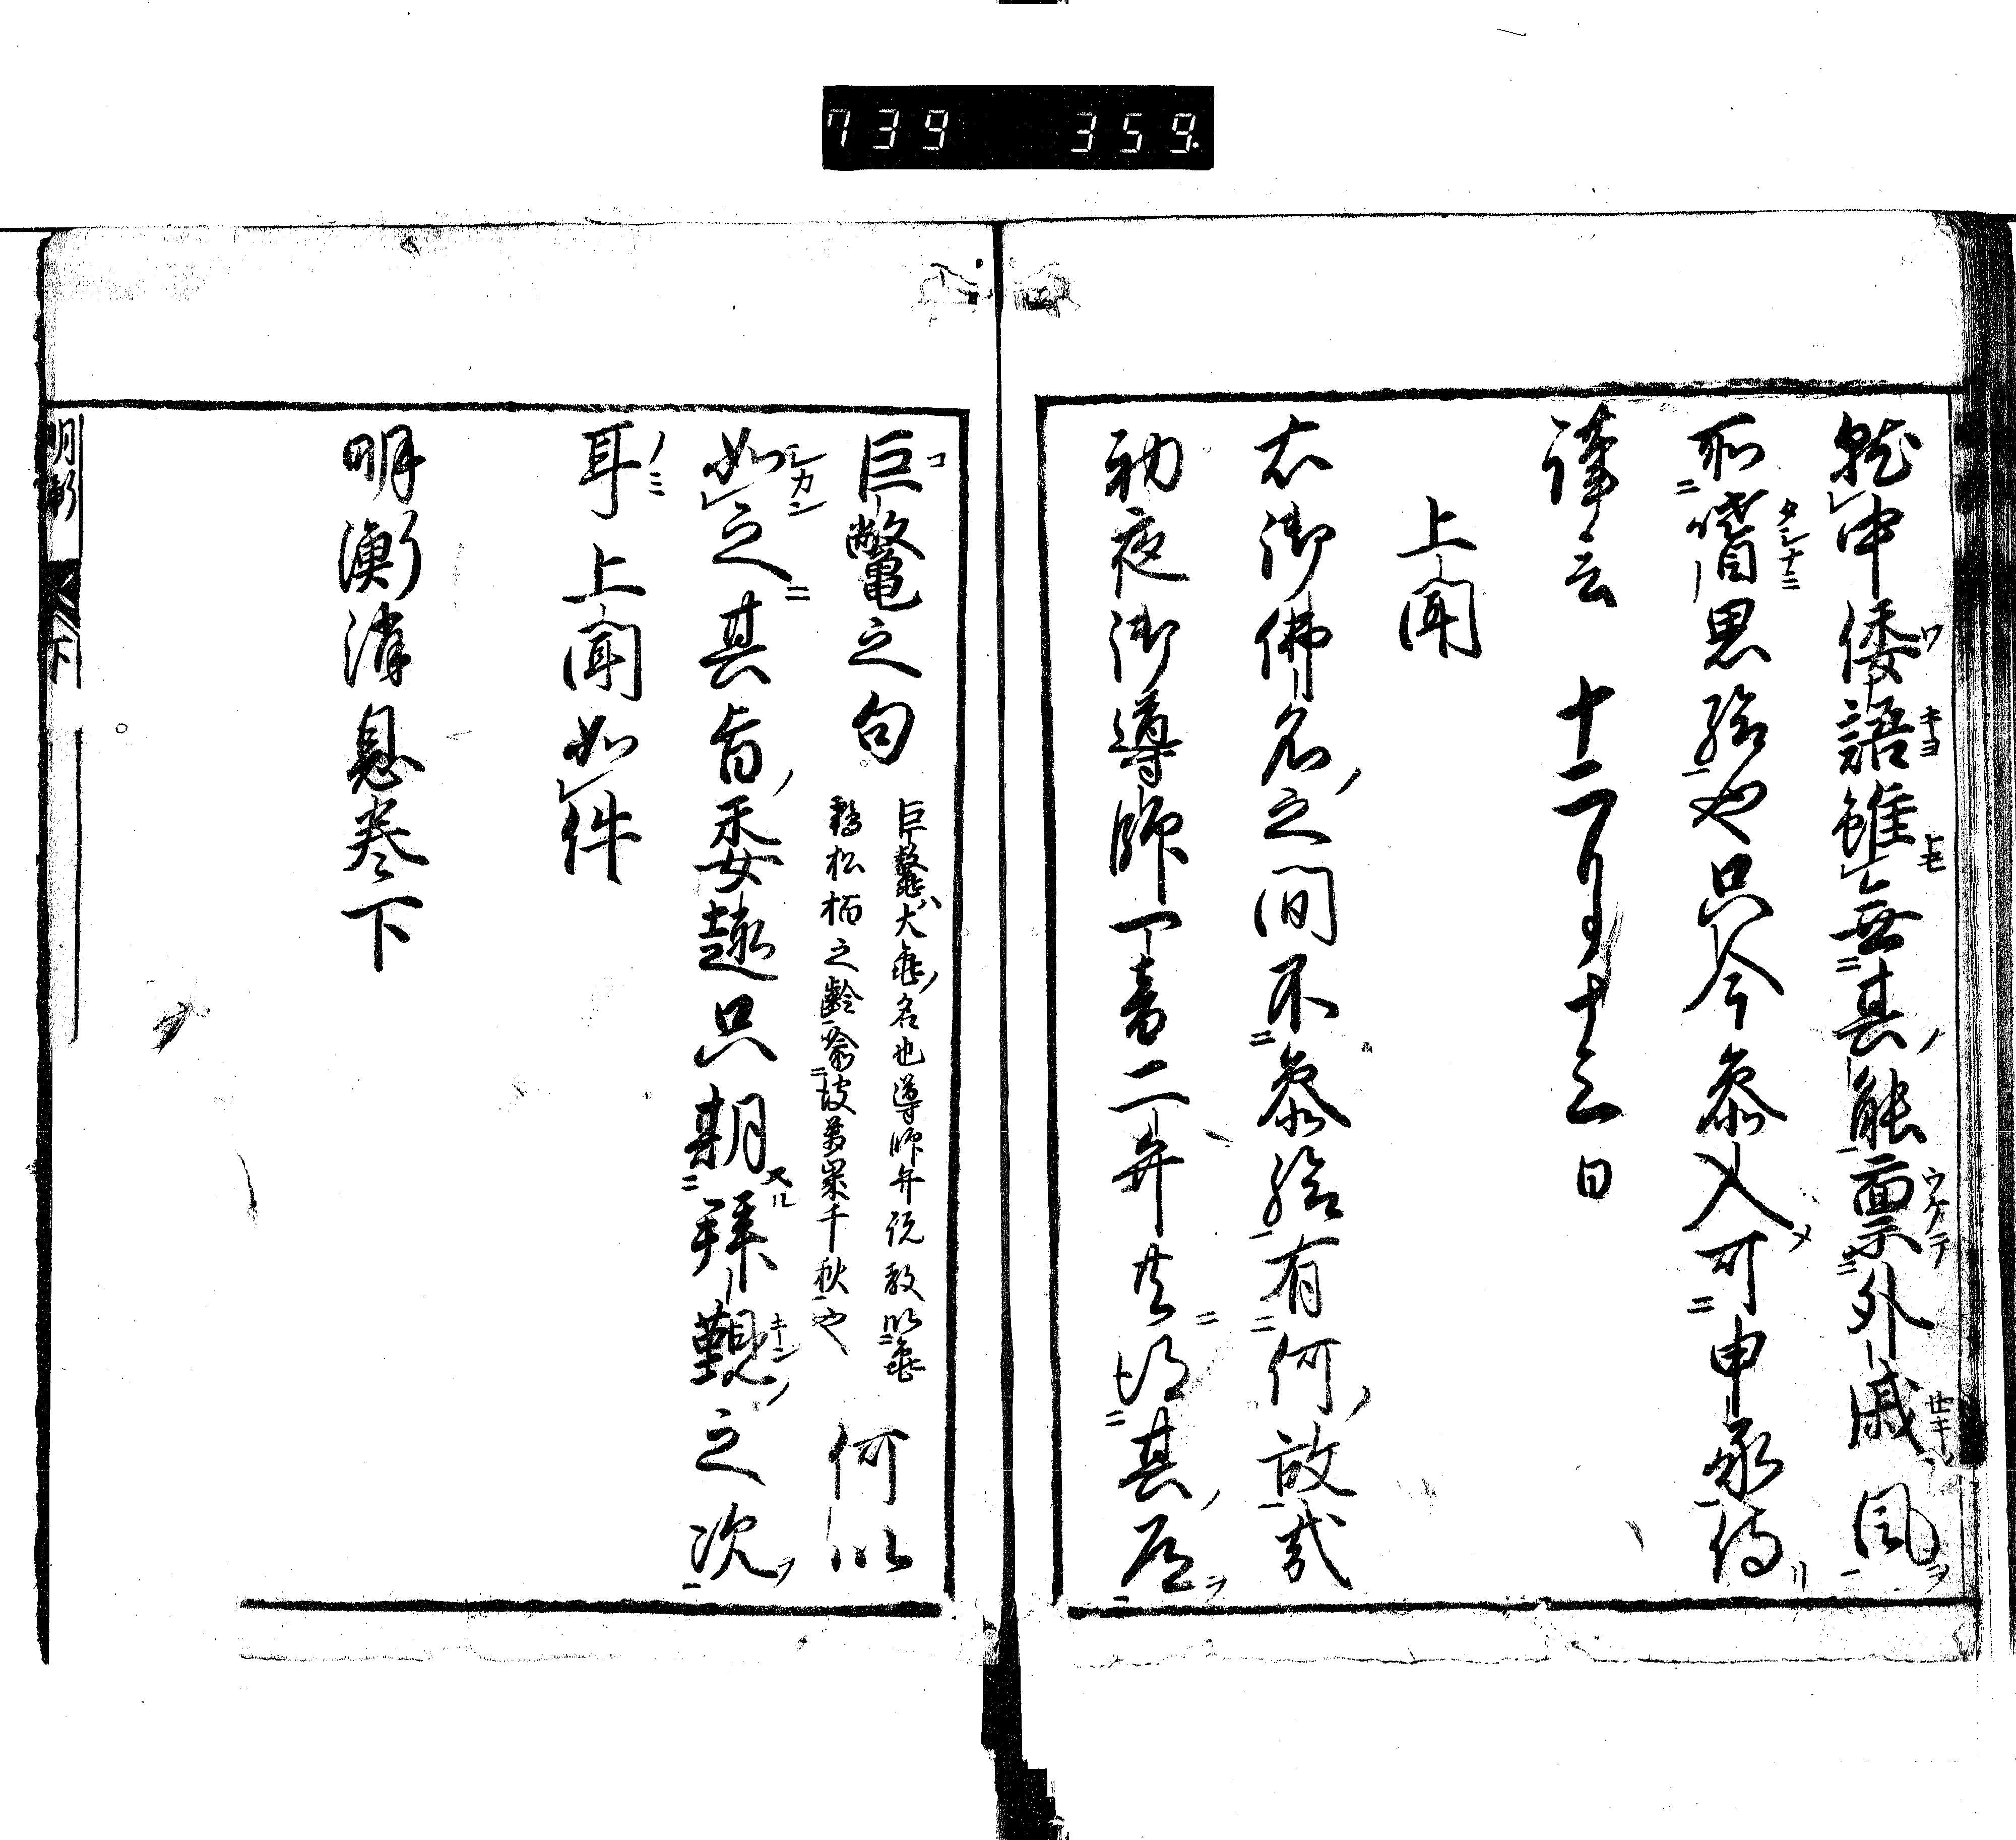 739 359
就中倭語雖無其能稟外戚風
所嗜思給也只今参入可申承侍
謹言 十二月十三日
上聞
右御佛名之間不参給有何故哉
初夜御導師丁音二弁共得其
巨鼇之句
巨鼇大亀名也導師弁説教以亀
鶴松栢之齢喩彼万歳千秋也
何以
如之其旨委趣只期拜覲之次
耳上聞如件
明衡消息巻下
明衡 下